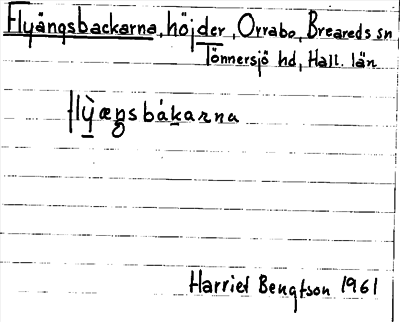 Flyängsbackarna, höjder, Orrabo, Breareds sn
Tönnersjö hd, Hall. län
flỳængsbákarna
Harriet Bengtson 1961